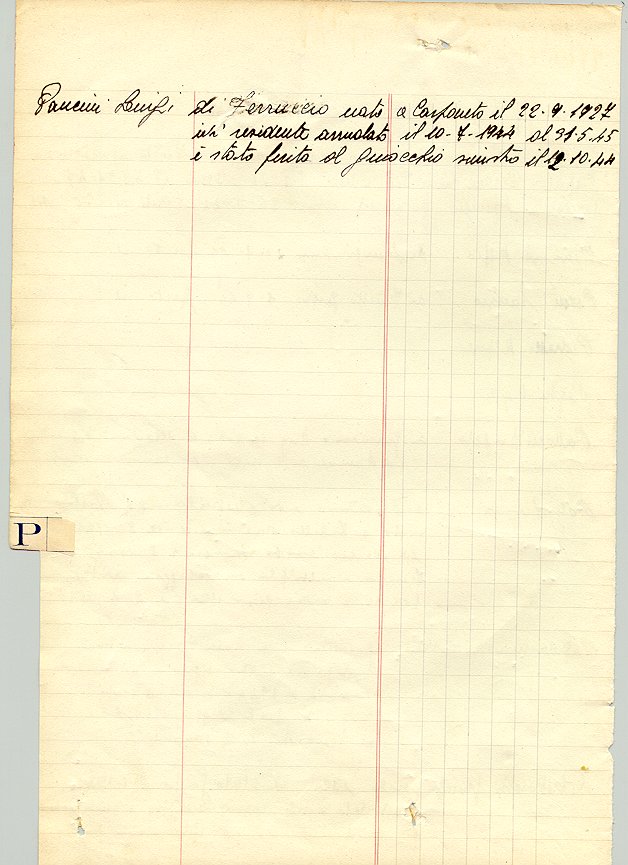 Pancini Luigi di Ferruccio nato a Carpaneto il 22-9-1927
ivi residente arruolato il 10-7-1944 al 31-5-45
è stato ferito al ginocchio sinistro il 12-10-44
P